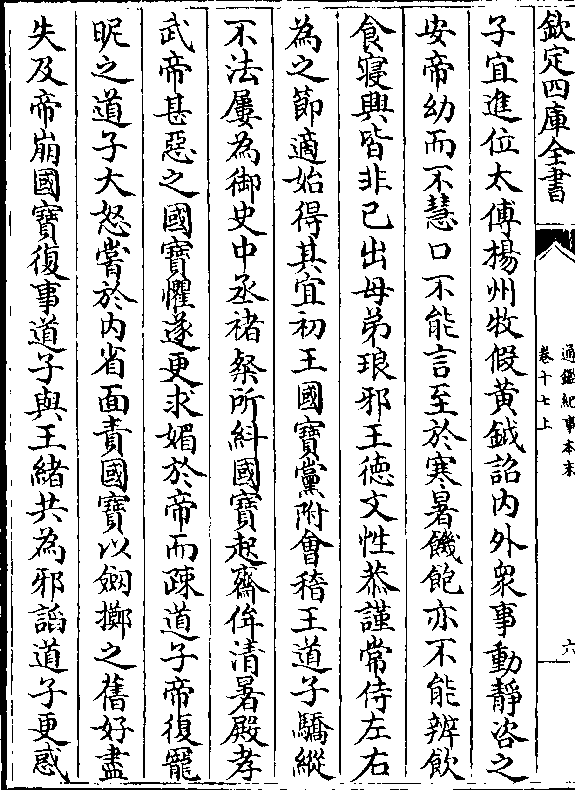 欽定四庫全書
通鑑紀事本末
卷十七上
六
子宜進位太傅揚州牧假黃鉞詔内外衆事動靜咨之
安帝幼而不慧口不能言至於寒暑饑飽亦不能辨飲
食寢興皆非已出母弟琅邪王徳文性恭謹常侍左右
為之節適始得其宜初王國寶黨附會稽王道子驕縱
不法屢為御史中丞褚粲所糾國寶起齋侔清暑殿孝
武帝甚惡之國寶懼遂更求媚於帝而疎道子帝復寵
昵之道子大怒嘗於内省面責國寶以劒擲之舊好盡
失及帝崩國寶復事道子與王緒共為邪諂道子更惑